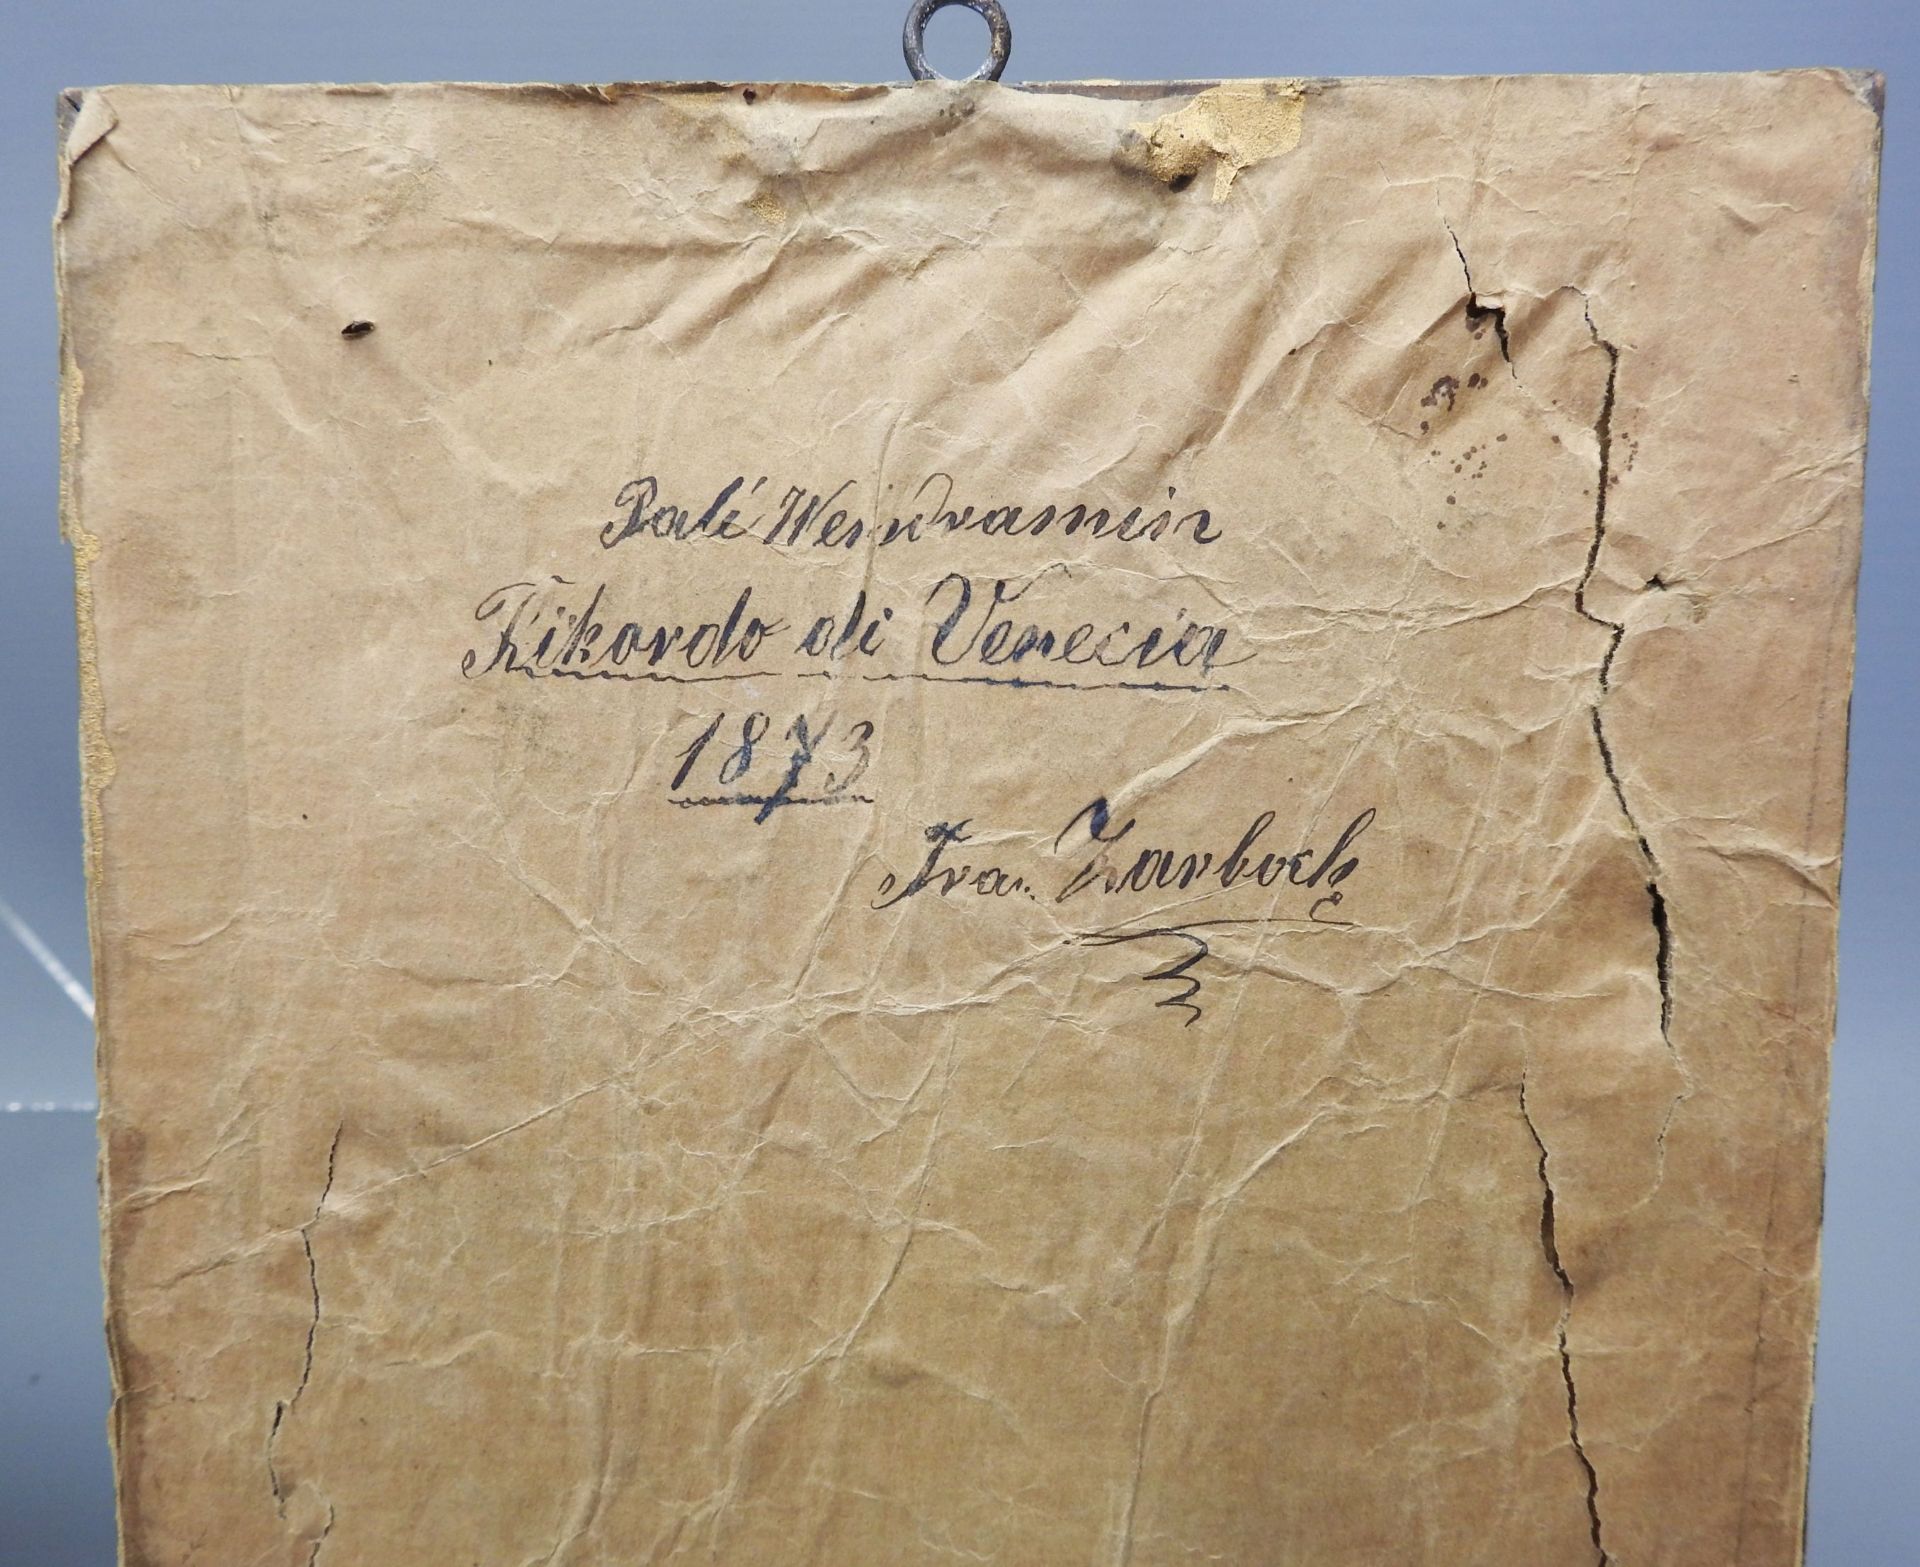 Palí Wendramin
Rikordo di Venecia
1873
Fra. Zarboch